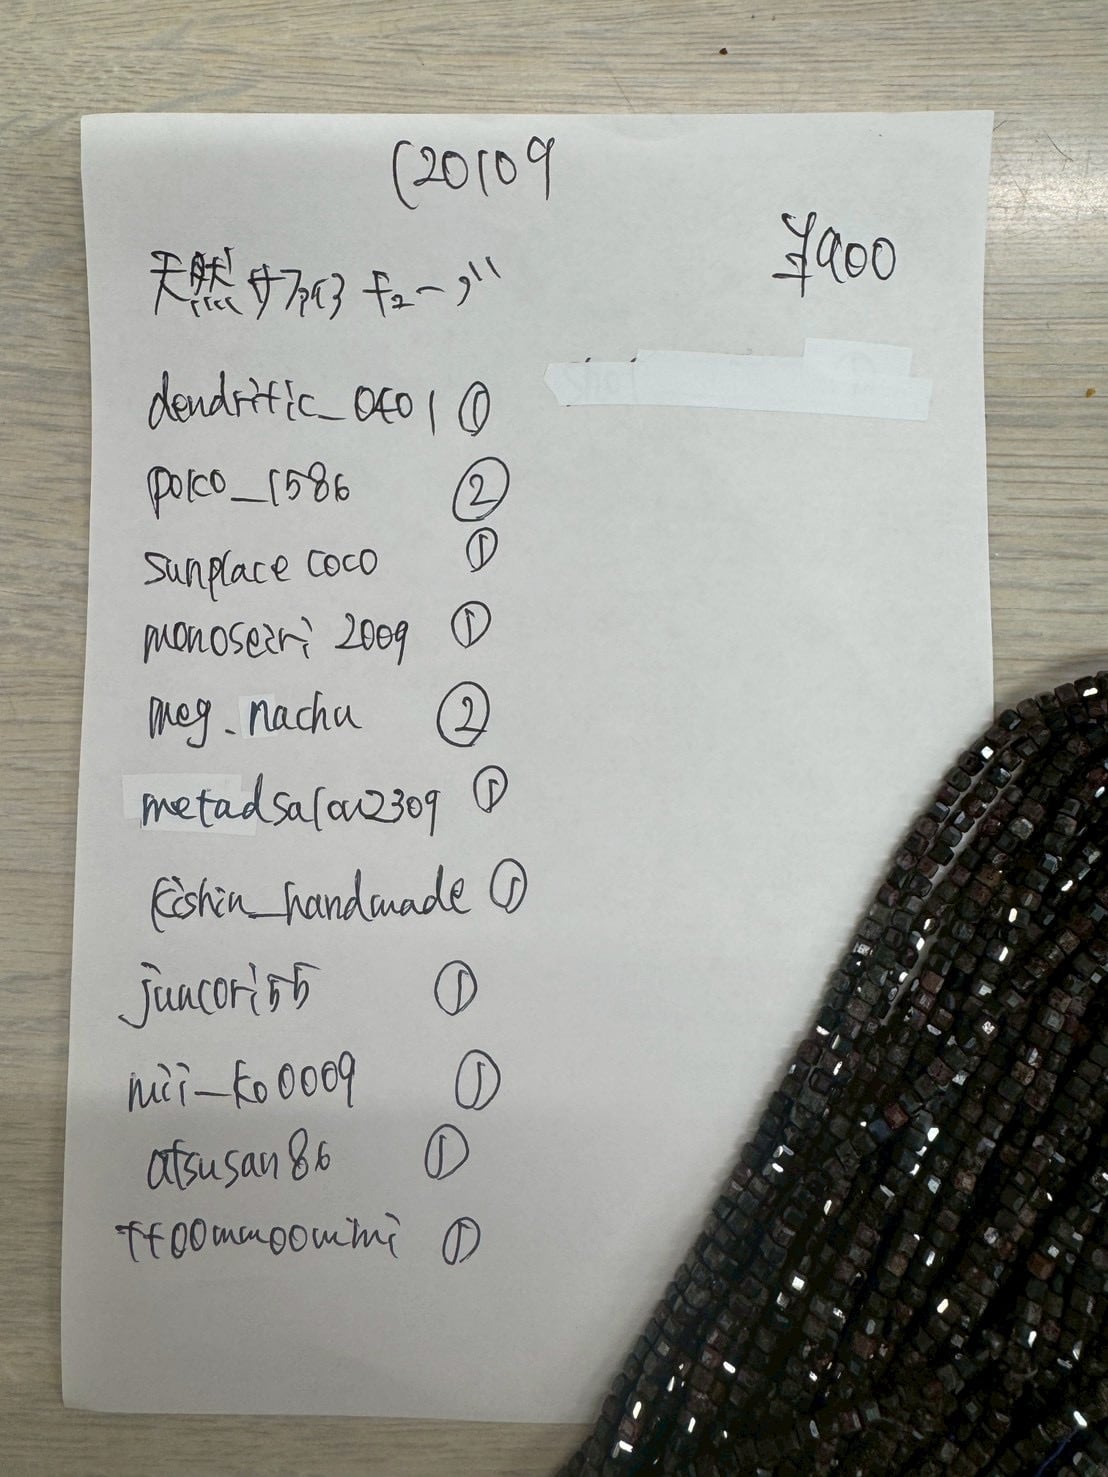 C20109
¥900
天然サファイヤ キューブ
dendritic_0401 ①
poko_1586 ②
sunplace coco ①
monoseiri 2009 ①
meg.nachu ②
metadsalon2309 ①
kishin_handmade ①
juncori55 ①
mii_ko0009 ①
atsusan86 ①
ff00mm00mimi ①